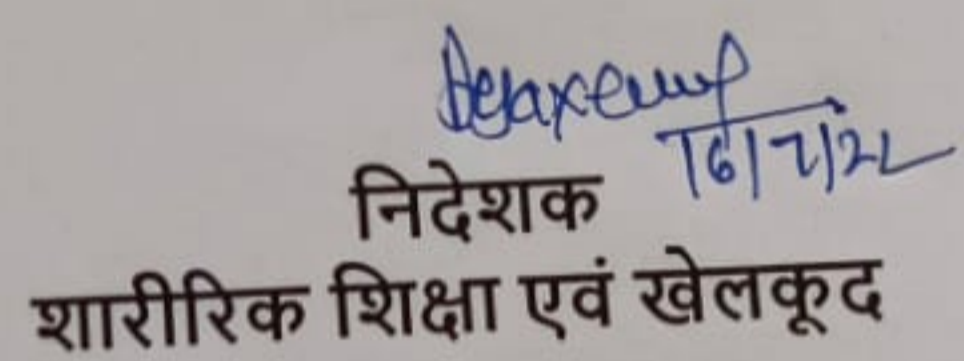 16/7/22
निदेशक
शारीरिक शिक्षा एवं खेलकूद